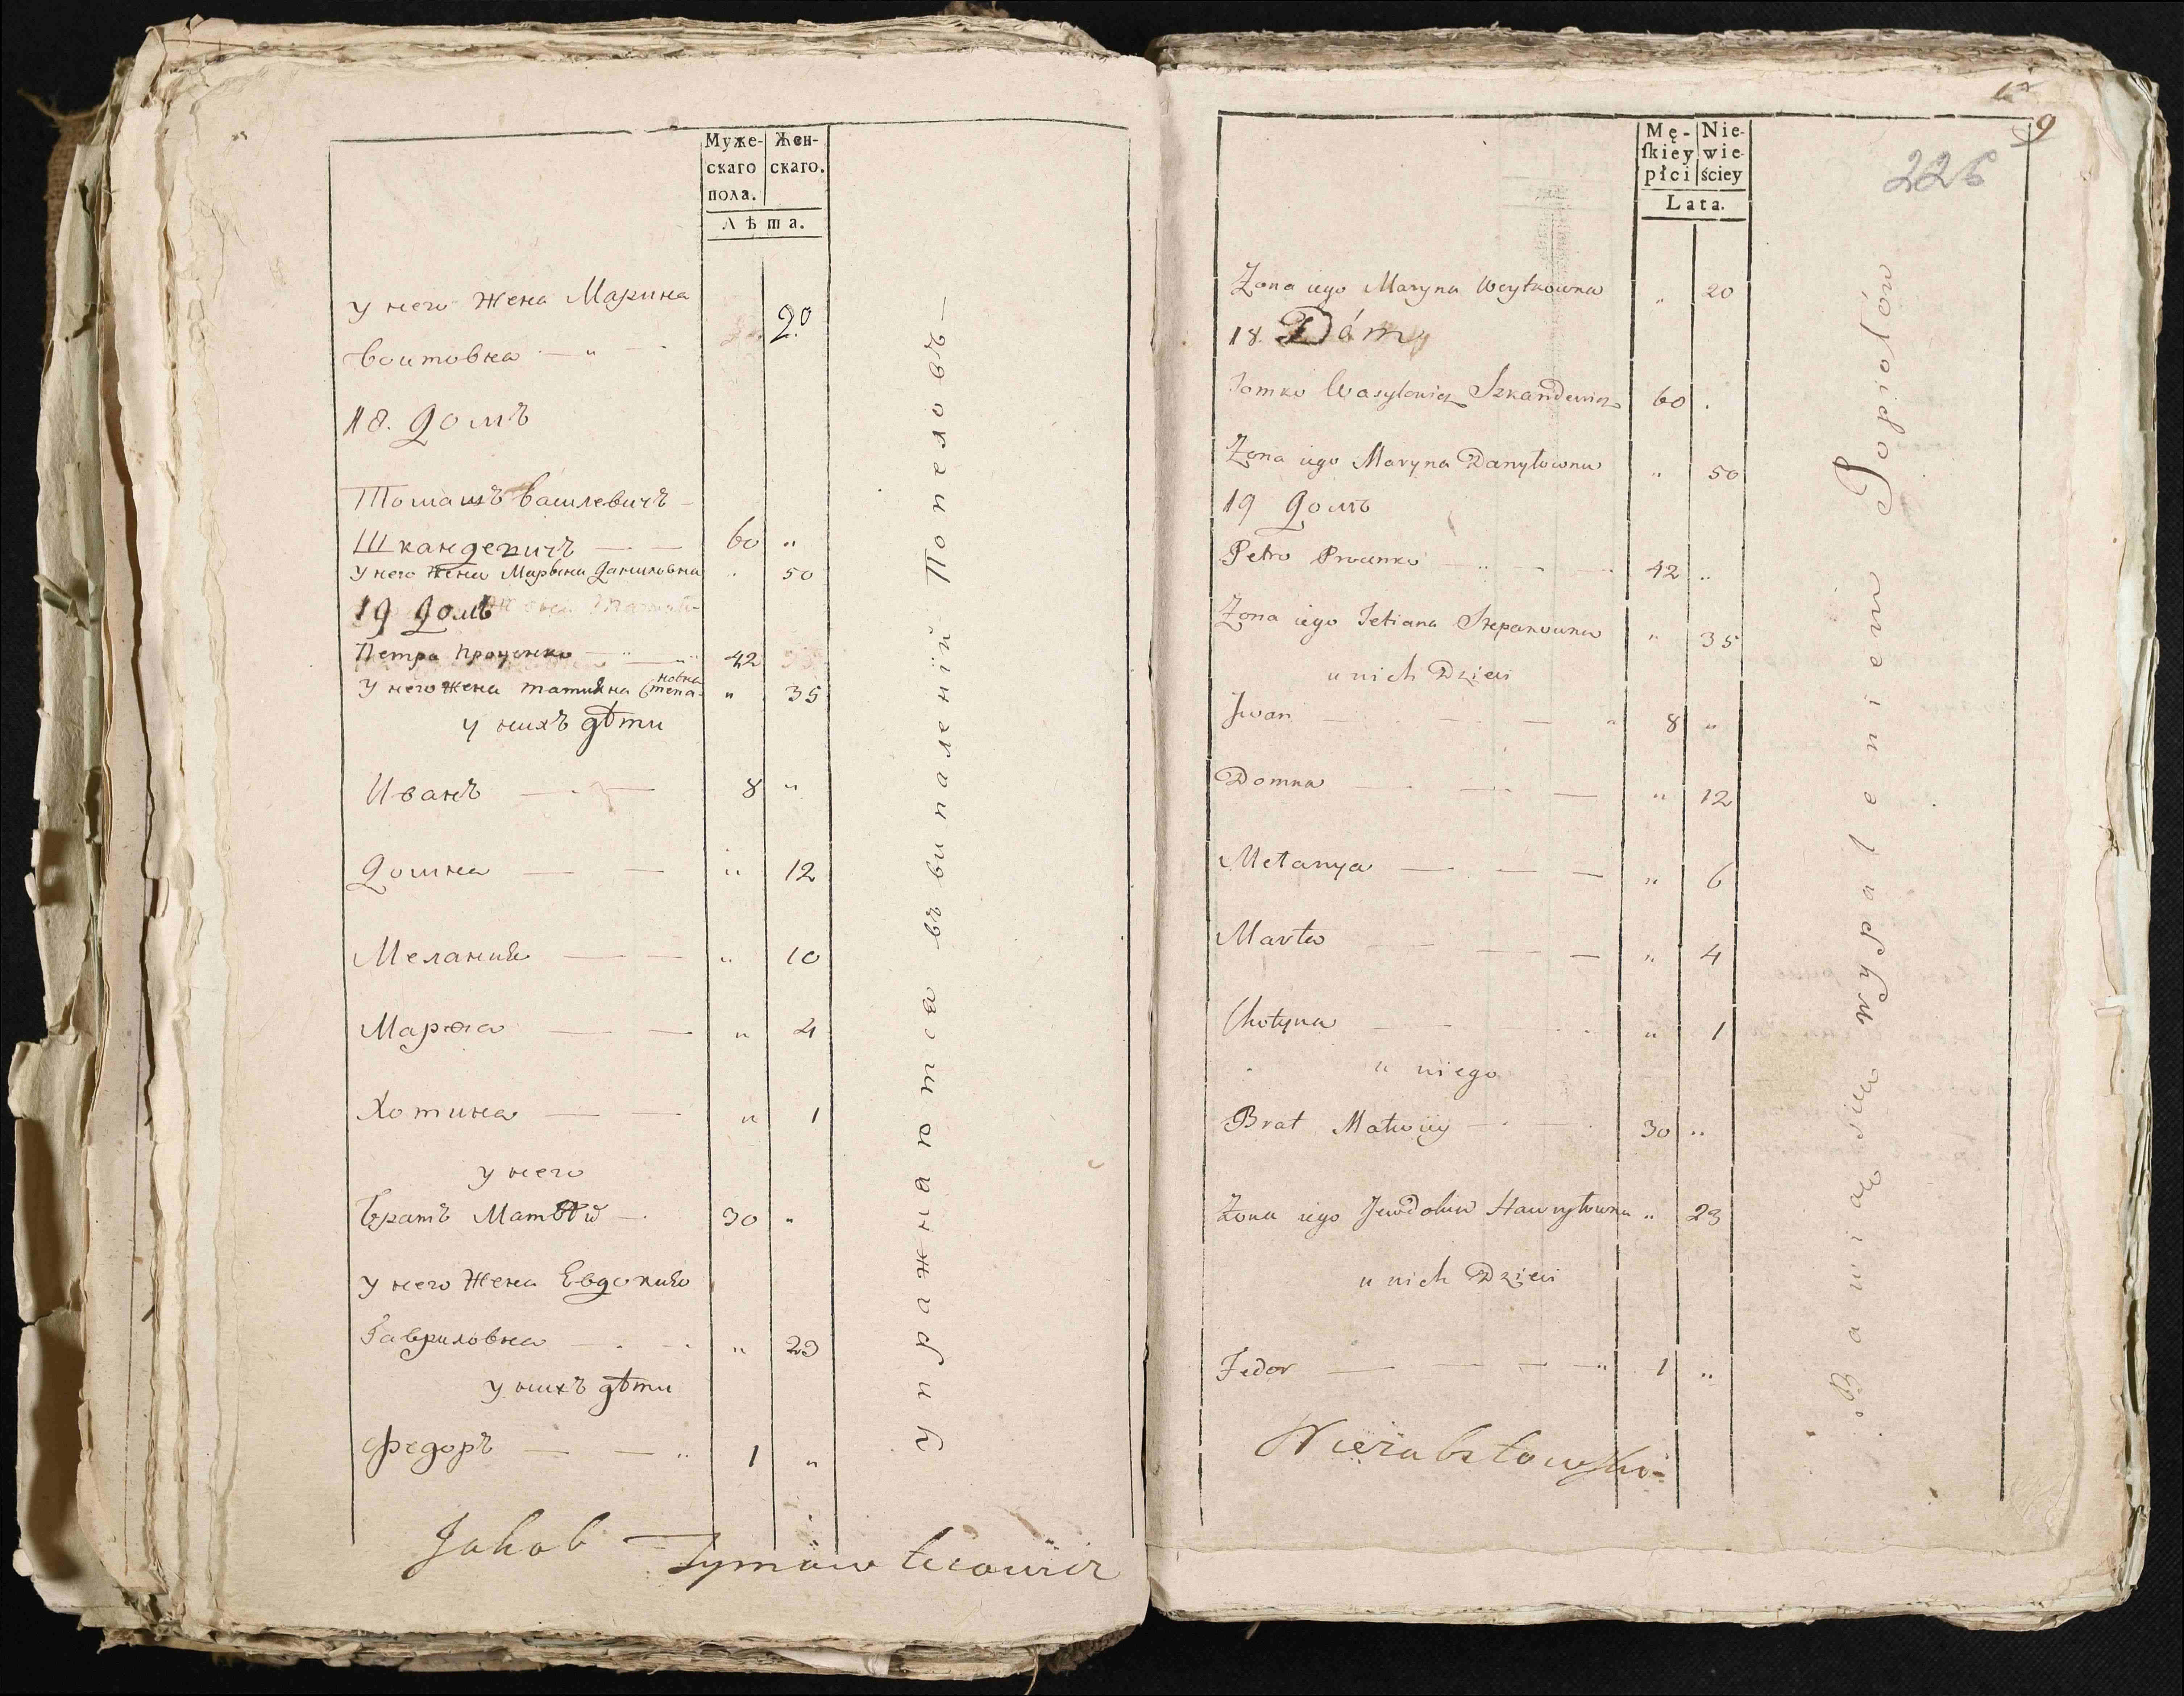 Муже- Жен-
скаго скаго.
пола.
Лѣта.
У него Жена Марина
Воитовна — " — 20
18. Домъ
Томашъ Василевичъ —
Шкандевичъ — — 60 "
У него Жена Марина Даниловна . 50
19 Домъ
Петра Проценко — " — " 42
У него жена татияна Степа- " 35
новна
у нихъ дѣти
Иванъ — — 8 "
Домна — — " 12
Мелания — — " 10
Марѳа — — " 4
Хотина — — " 1
у него
Братъ Матвѣй — 30 "
У него Жена Евдокия
Гавриловна — . . " 23
у нихъ дѣти
Федоръ — — " 1 "
Упражнаютса въ випаленій Попеловъ —
Jakob Tymow
9
226
Mę- Nie-
skiey wie-
płci ściey
Lata.
Żona iego Maryna Woytkowna " 20
18. Dom
Tomko Wasylowicz Szkandewicz 60 .
Żona iego Maryna Danyłowna " 50
19 Домъ
Petro Procenko — " — — 42 "
Żona iego Tetiana Stepanowna " 35
u nich Dzieci
Jwan — — — " 8 "
Domna — — — " 12
Mełanya — — — " 6
Marta — — — " 4
Chotyna — — . . " 1
u niego
Brat Matwiiy — . — . 30 "
Żona iego Jewdokia Hawryłowna " 23
u nich Dzieci
Fedor — — — — " 1 "
Bawią się wypaleniem Popiołów